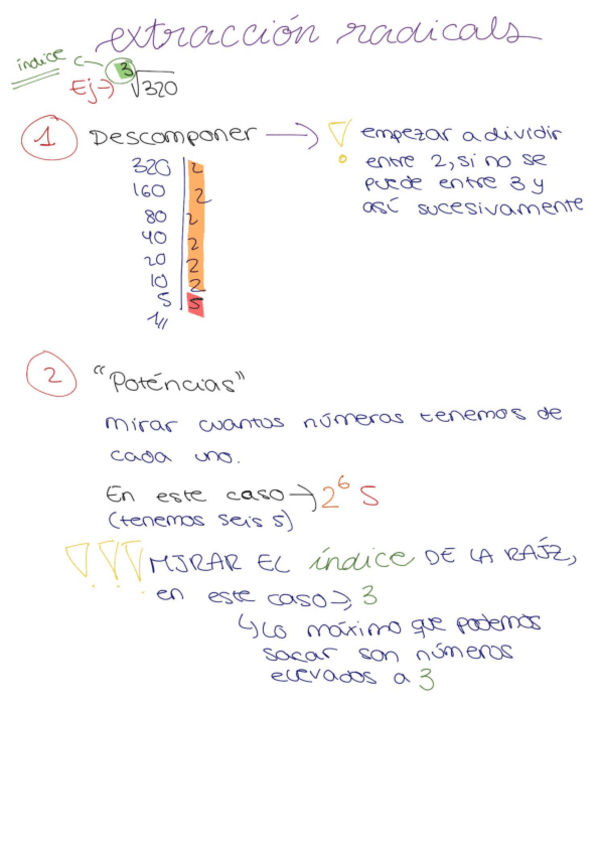 extracción radicals
índice
Ej→ ³√320
1 Descomponer → empezar a dividir
entre 2, si no se
puede entre 3 y
así sucesivamente
320 2
160 2
80 2
40 2
20 2
10 2
5 5
1//
2 "Poténcias"
mirar cuantos números tenemos de
cada uno.
En este caso → 2⁶ 5
(tenemos seis 5)
MIRAR EL índice DE LA RAÍZ,
en este caso → 3
↳ Lo máximo que podemos
sacar son números
elevados a 3